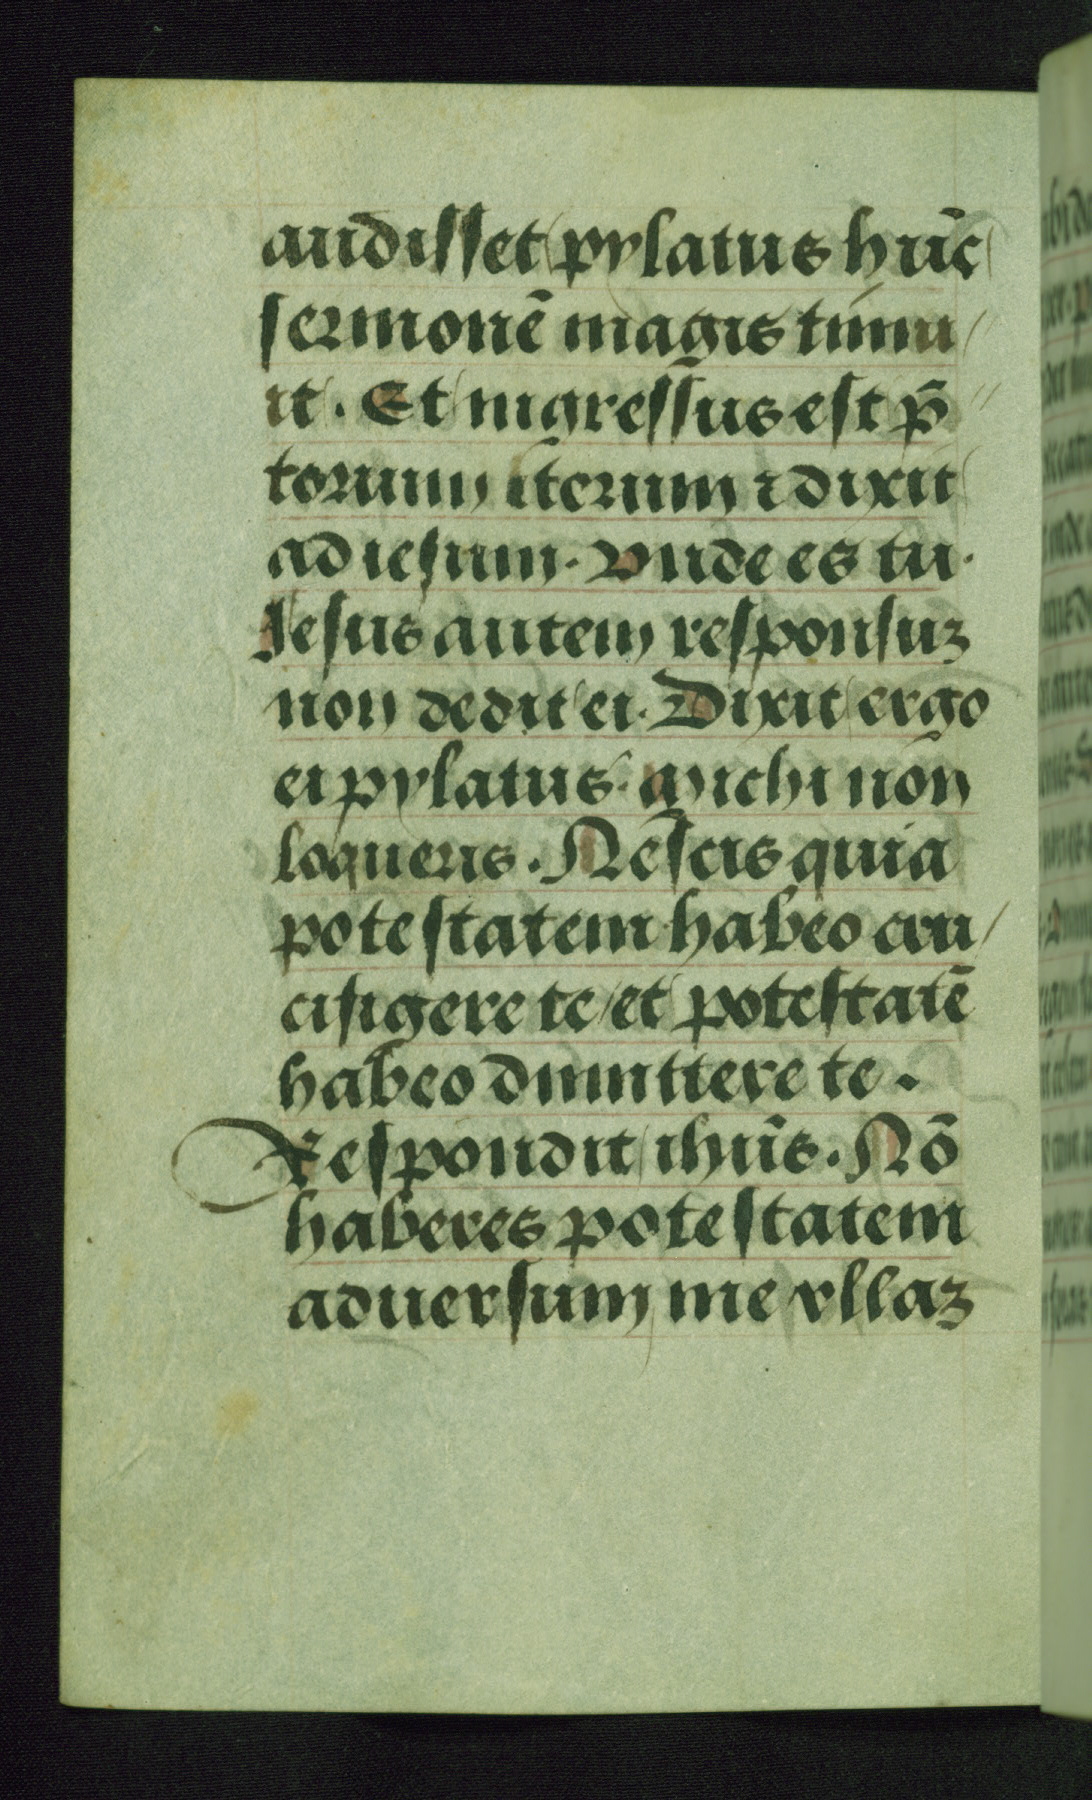 audisset pylatus hūc
sermonē magis timu/
it. Et ingressus est p̄
torium iterum ⁊ dixit
ad iesum. Vnde es tu.
Iesus autem responsuꝫ
non dedit ei. Dixit ergo
ei pylatus. Michi non
loqueris. Nescis quia
potestatem habeo cru/
cifigere te et potestatē
habeo dimittere te.
Respondit ihūs. Nō
haberes potestatem
aduersum me vllaꝫ